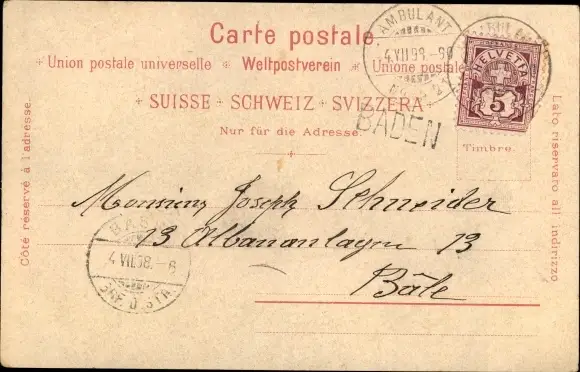 Carte postale.
Union postale universelle * Weltpostverein * Unione postale
SUISSE + SCHWEIZ + SVIZZERA
Nur für die Adresse.
Côté réservé à l'adresse.
Lato riservato all indirizzo
AMBULANT
4.VII.98.-
AMBULANT
HELVETIA
5
BADEN
Timbre.
Monsieur Joseph Schneider
13 Albananlagen 13
Bâle
BAS
4.VII.98.-6
BRF. D. STR.